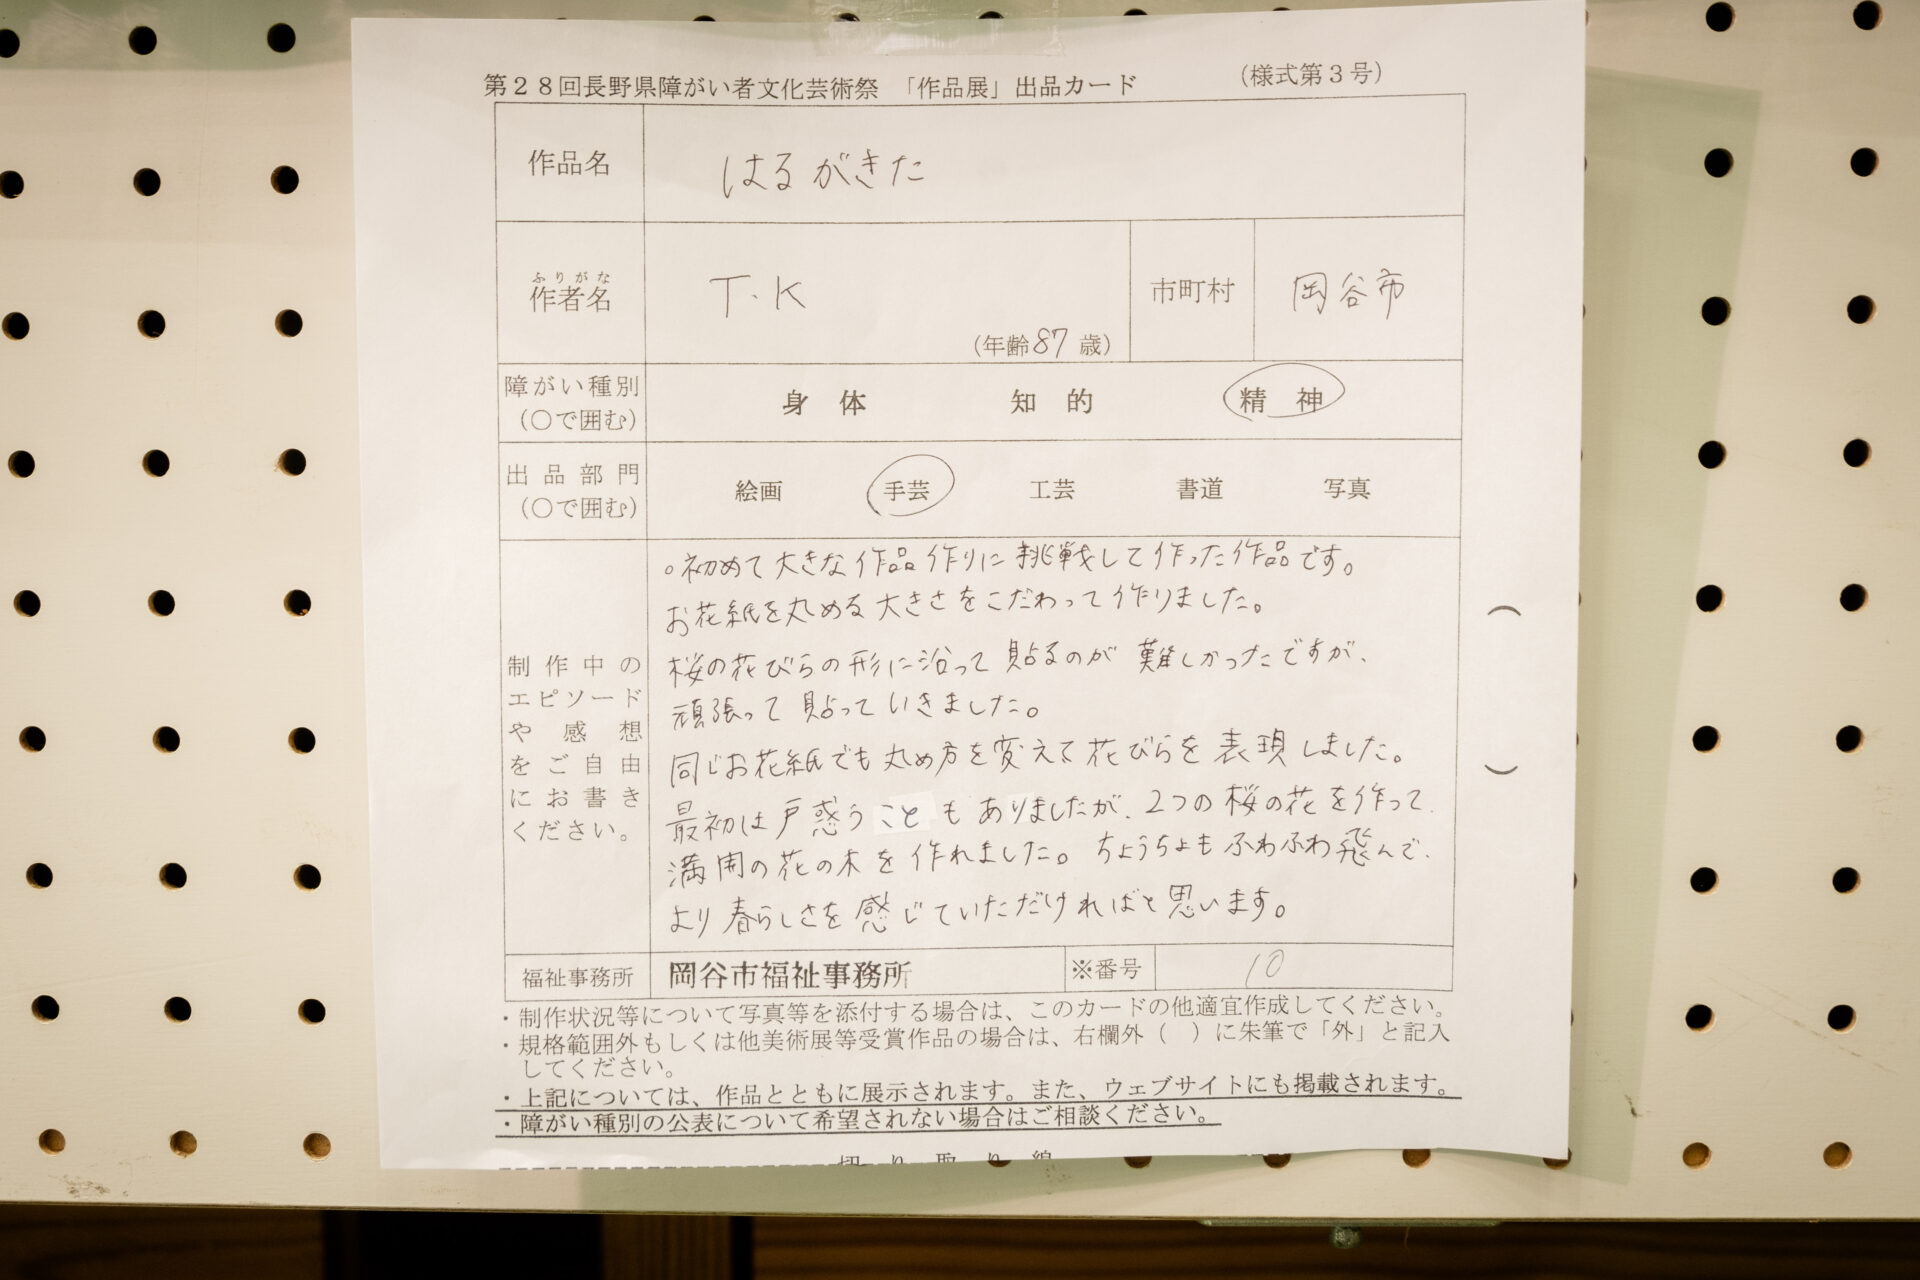 第28回長野県障がい者文化芸術祭 「作品展」出品カード (様式第3号)
作品名 はるがきた
ふりがな
作者名 T.K (年齢87歳) 市町村 岡谷市
障がい種別
(○で囲む) 身体 知的 精神
出品部門
(○で囲む) 絵画 手芸 工芸 書道 写真
制作中の
エピソード
や感想
をご自由
にお書き
ください。
。初めて大きな作品作りに挑戦して作った作品です。
お花紙を丸める大きさをこだわって作りました。
桜の花びらの形に沿って貼るのが難しかったですが、
頑張って貼っていきました。
同じお花紙でも丸め方を変えて花びらを表現しました。
最初は戸惑うこともありましたが、2つの桜の花を作って、
満開の花の木を作れました。ちょうちょもふわふわ飛んで、
より春らしさを感じていただければと思います。
( )
福祉事務所 岡谷市福祉事務所 ※番号 10
・制作状況等について写真等を添付する場合は、このカードの他適宜作成してください。
・規格範囲外もしくは他美術展等受賞作品の場合は、右欄外( )に朱筆で「外」と記入
してください。
・上記については、作品とともに展示されます。また、ウェブサイトにも掲載されます。
・障がい種別の公表について希望されない場合はご相談ください。
切り取り線